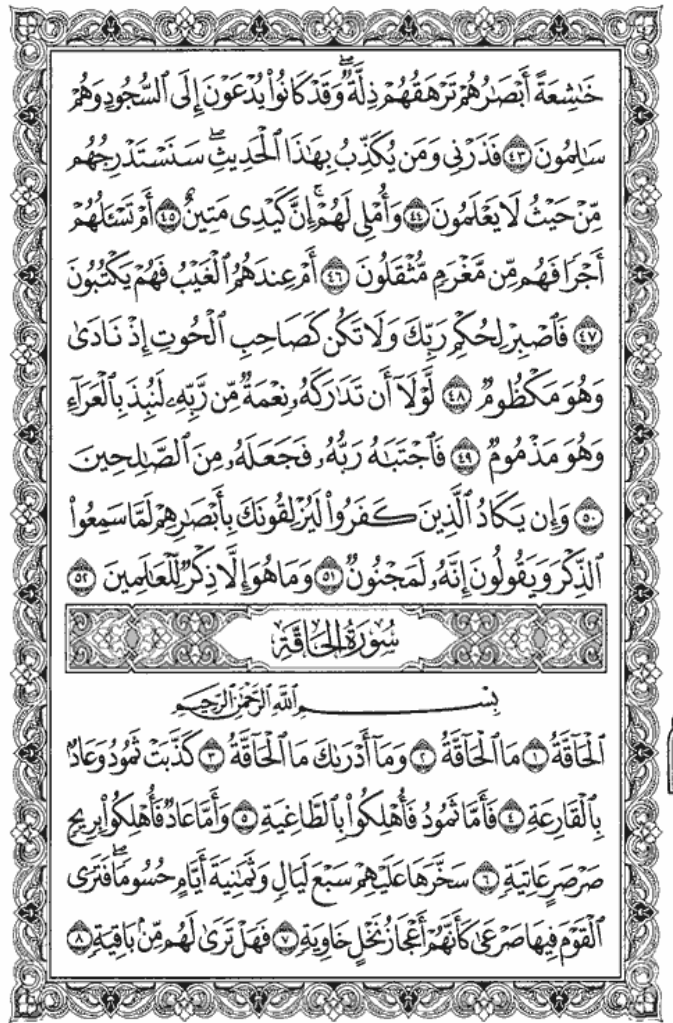 خَـٰشِعَةً أَبْصَـٰرُهُمْ تَرْهَقُهُمْ ذِلَّةٌ ۖ وَقَدْ كَانُوا۟ يُدْعَوْنَ إِلَى ٱلسُّجُودِ وَهُمْ
سَـٰلِمُونَ ٤٣ فَذَرْنِى وَمَن يُكَذِّبُ بِهَـٰذَا ٱلْحَدِيثِ ۖ سَنَسْتَدْرِجُهُم
مِّنْ حَيْثُ لَا يَعْلَمُونَ ٤٤ وَأُمْلِى لَهُمْ ۚ إِنَّ كَيْدِى مَتِينٌ ٤٥ أَمْ تَسْـَٔلُهُمْ
أَجْرًا فَهُم مِّن مَّغْرَمٍ مُّثْقَلُونَ ٤٦ أَمْ عِندَهُمُ ٱلْغَيْبُ فَهُمْ يَكْتُبُونَ
٤٧ فَٱصْبِرْ لِحُكْمِ رَبِّكَ وَلَا تَكُن كَصَاحِبِ ٱلْحُوتِ إِذْ نَادَىٰ
وَهُوَ مَكْظُومٌ ٤٨ لَّوْلَآ أَن تَدَٰرَكَهُۥ نِعْمَةٌ مِّن رَّبِّهِۦ لَنُبِذَ بِٱلْعَرَآءِ
وَهُوَ مَذْمُومٌ ٤٩ فَٱجْتَبَـٰهُ رَبُّهُۥ فَجَعَلَهُۥ مِنَ ٱلصَّـٰلِحِينَ
٥٠ وَإِن يَكَادُ ٱلَّذِينَ كَفَرُوا۟ لَيُزْلِقُونَكَ بِأَبْصَـٰرِهِمْ لَمَّا سَمِعُوا۟
ٱلذِّكْرَ وَيَقُولُونَ إِنَّهُۥ لَمَجْنُونٌ ٥١ وَمَا هُوَ إِلَّا ذِكْرٌ لِّلْعَـٰلَمِينَ ٥٢
سُورَةُ الحَاقَّةِ
بِسْمِ ٱللَّهِ ٱلرَّحْمَـٰنِ ٱلرَّحِيمِ
ٱلْحَآقَّةُ ١ مَا ٱلْحَآقَّةُ ٢ وَمَآ أَدْرَىٰكَ مَا ٱلْحَآقَّةُ ٣ كَذَّبَتْ ثَمُودُ وَعَادٌۢ
بِٱلْقَارِعَةِ ٤ فَأَمَّا ثَمُودُ فَأُهْلِكُوا۟ بِٱلطَّاغِيَةِ ٥ وَأَمَّا عَادٌ فَأُهْلِكُوا۟ بِرِيحٍ
صَرْصَرٍ عَاتِيَةٍ ٦ سَخَّرَهَا عَلَيْهِمْ سَبْعَ لَيَالٍ وَثَمَـٰنِيَةَ أَيَّامٍ حُسُومًا ۖ فَتَرَى
ٱلْقَوْمَ فِيهَا صَرْعَىٰ كَأَنَّهُمْ أَعْجَازُ نَخْلٍ خَاوِيَةٍ ٧ فَهَلْ تَرَىٰ لَهُم مِّنۢ بَاقِيَةٍ ٨